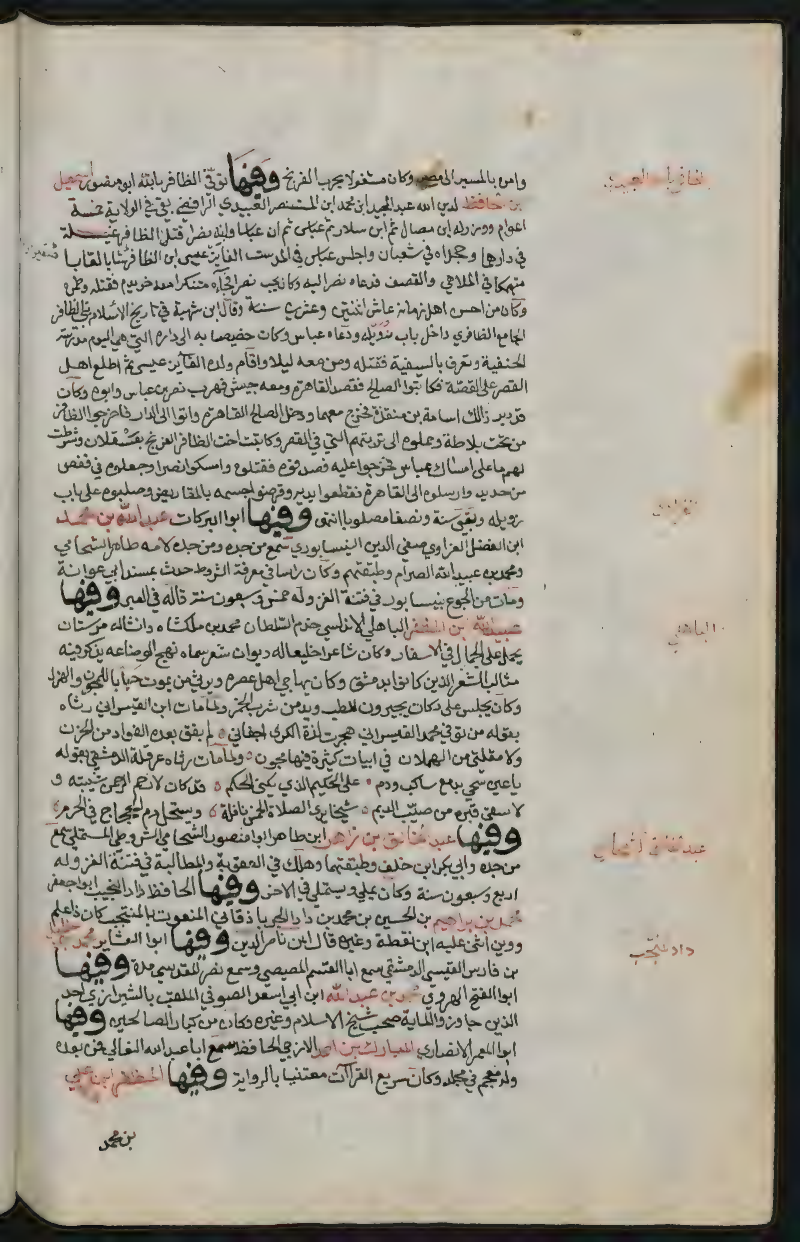 وامر بالمسير الى مصر وكان مشغولا بحرب الفرنج وفيها توفي الظافر بالله ابو منصور اسمعيل
بن حافظ لدين الله عبد المجيد ابن محمد ابن المستنصر العبيدي الرافضي بقي في الولاية خمسة
اعوام ووزر له ابن مصال ثم ابن سلار ثم عباس ثم ان عباسا وابنه نصرا قتل الظافر غيلة
في دارهما وجحداه في شعبان واجلس عباس في الدست الفايز عيسى ابن الظافر شابا لعابا
منهمكا في الملاهي والقصف فدعاه نصر اليه وكان يحب نصر فجاءه متنكرا معه خويدم فقتله وطمره
وكان من احسن اهل زمانه عاش اثنتين وعشرين سنة وقال ابن شهبة في تاريخ الاسلام بنى الظافر
الجامع الظافري داخل باب زويلة ودعاه عباس وكان خصيصا به الى داره التي هي اليوم مدرسة
الحنفية وتعرف بالسيفية فقتله ومن معه ليلا واقام ولده الفايز عيسى ثم اطلع اهل
القصر على القصة فكاتبوا الصالح فقصد القاهرة ومعه جيش فهرب نصر بن عباس وابوه وكان
قد دبر ذالك اسامة بن منقذ فخرج معهما ودخل الصالح القاهرة واتى الى الدار فاخرجوا الظافر
من تحت بلاطة وحملوه الى تربتهم التي في القصر وكاتبت اخت الظافر الفرنج بعسقلان وشرطت
لهم ما على امساك عباس فخرجوا عليه فصدفوه فقتلوه وامسكوا نصرا وجعلوه في قفص
من حديد وارسلوه الى القاهرة فقطعوا يديه وقرضوا جسمه بالمقاريض وصلبوه على باب
زويله وبقي سنة ونصفا مصلوبا انتهى وفيها ابوا البركات عبد الله بن محمد
ابن الفضل الفراوي صفي الدين النيسابوري سمع من جده ومن جده لامه طاهر الشحامي
ومحمد بن عبيد الله الصرام وطبقتهم وكان راسا في معرفة الشروط حدث بمسند ابي عوانة
ومات من الجوع بنيسابور في فتنة الغز وله خمس وسبعون سنة قاله في العبر وفيها
عبيد الله بن المظفر الباهلي الاندلسي خدم السلطان محمد بن ملكشاه وانشا له مرستان
يحمل على الجمال في الاسفار وكان شاعرا خليعا له ديوان شعر سماه نهج الوضاعه يذكر فيه
مثالب الشعراء الذين كانوا بدمشق وكان يهاجي اهل عصره ويرثي من يموت حيا باللجون والهزل
وكان يجلس على دكان بجيرون للطب ويدمن شرب الخمر ولما مات ابن القيسراني رثاه
بقوله من توفي محمد القيسراني هجرت لذة الكرى اجفاني لم يفق بعده الفواد من الحزن
ولا مقلتي من الهملان في ابيات كثيرة فيها مجون ولما مات رثاه عرقلة الدمشقي بقوله
يا عين سحي بدمع ساكب ودم على الحكيم الذي يكنى الحكم قد كان لا رحم الرحمن شيبته و
لا سقى قبره من صيب الديم شيخا يرى الصلاة الخمس نافلة ويستحل دم الحجاج في الحرم
وفيها عبد الخالق بن زاهر ابن طاهر ابوا منصور الشحامي الشروطي المستملي سمع
من جده وابي بكر ابن خلف وطبقتهما وهلك في العقوبة والمطالبة في فتنة الغز وله
اربع وسبعون سنة وكان يملي ويستملي في الاخر وفيها الحافظ داد النجيب ابوا جعفر
محمد بن ابراهيم بن الحسين بن محمد بن دادا الجرباذقاني المنعوت بالمنتجب كان ذا علم
ودين اثنى عليه ابن نقطة وغيره قال ابن ناصر الدين وفيها ابوا العشاير محمد بن خليل
بن فارس القيسي الدمشقي سمع ابا القسم المصيصي وسمع نصر المقدسي مدة وفيها
ابوا الفتح الهروي محمد بن عبد الله ابن ابي اسعد الصوفي الملقب بالشيرازي احد
الذين جاوزوا الماية صحب شيخ الاسلام وغيره وكان من كبار الصالحين وفيها
ابوا المعمر الانصاري المبارك بن احمد الازجي الحافظ سمع ابا عبد الله النعالي فمن بعده
وله معجم في مجلد وكان سريع القراآت معتنيا بالرواية وفيها المظفر ابن علي
بن محمد
الباهلي
عبد الخالق الشحامي
داد منتجب